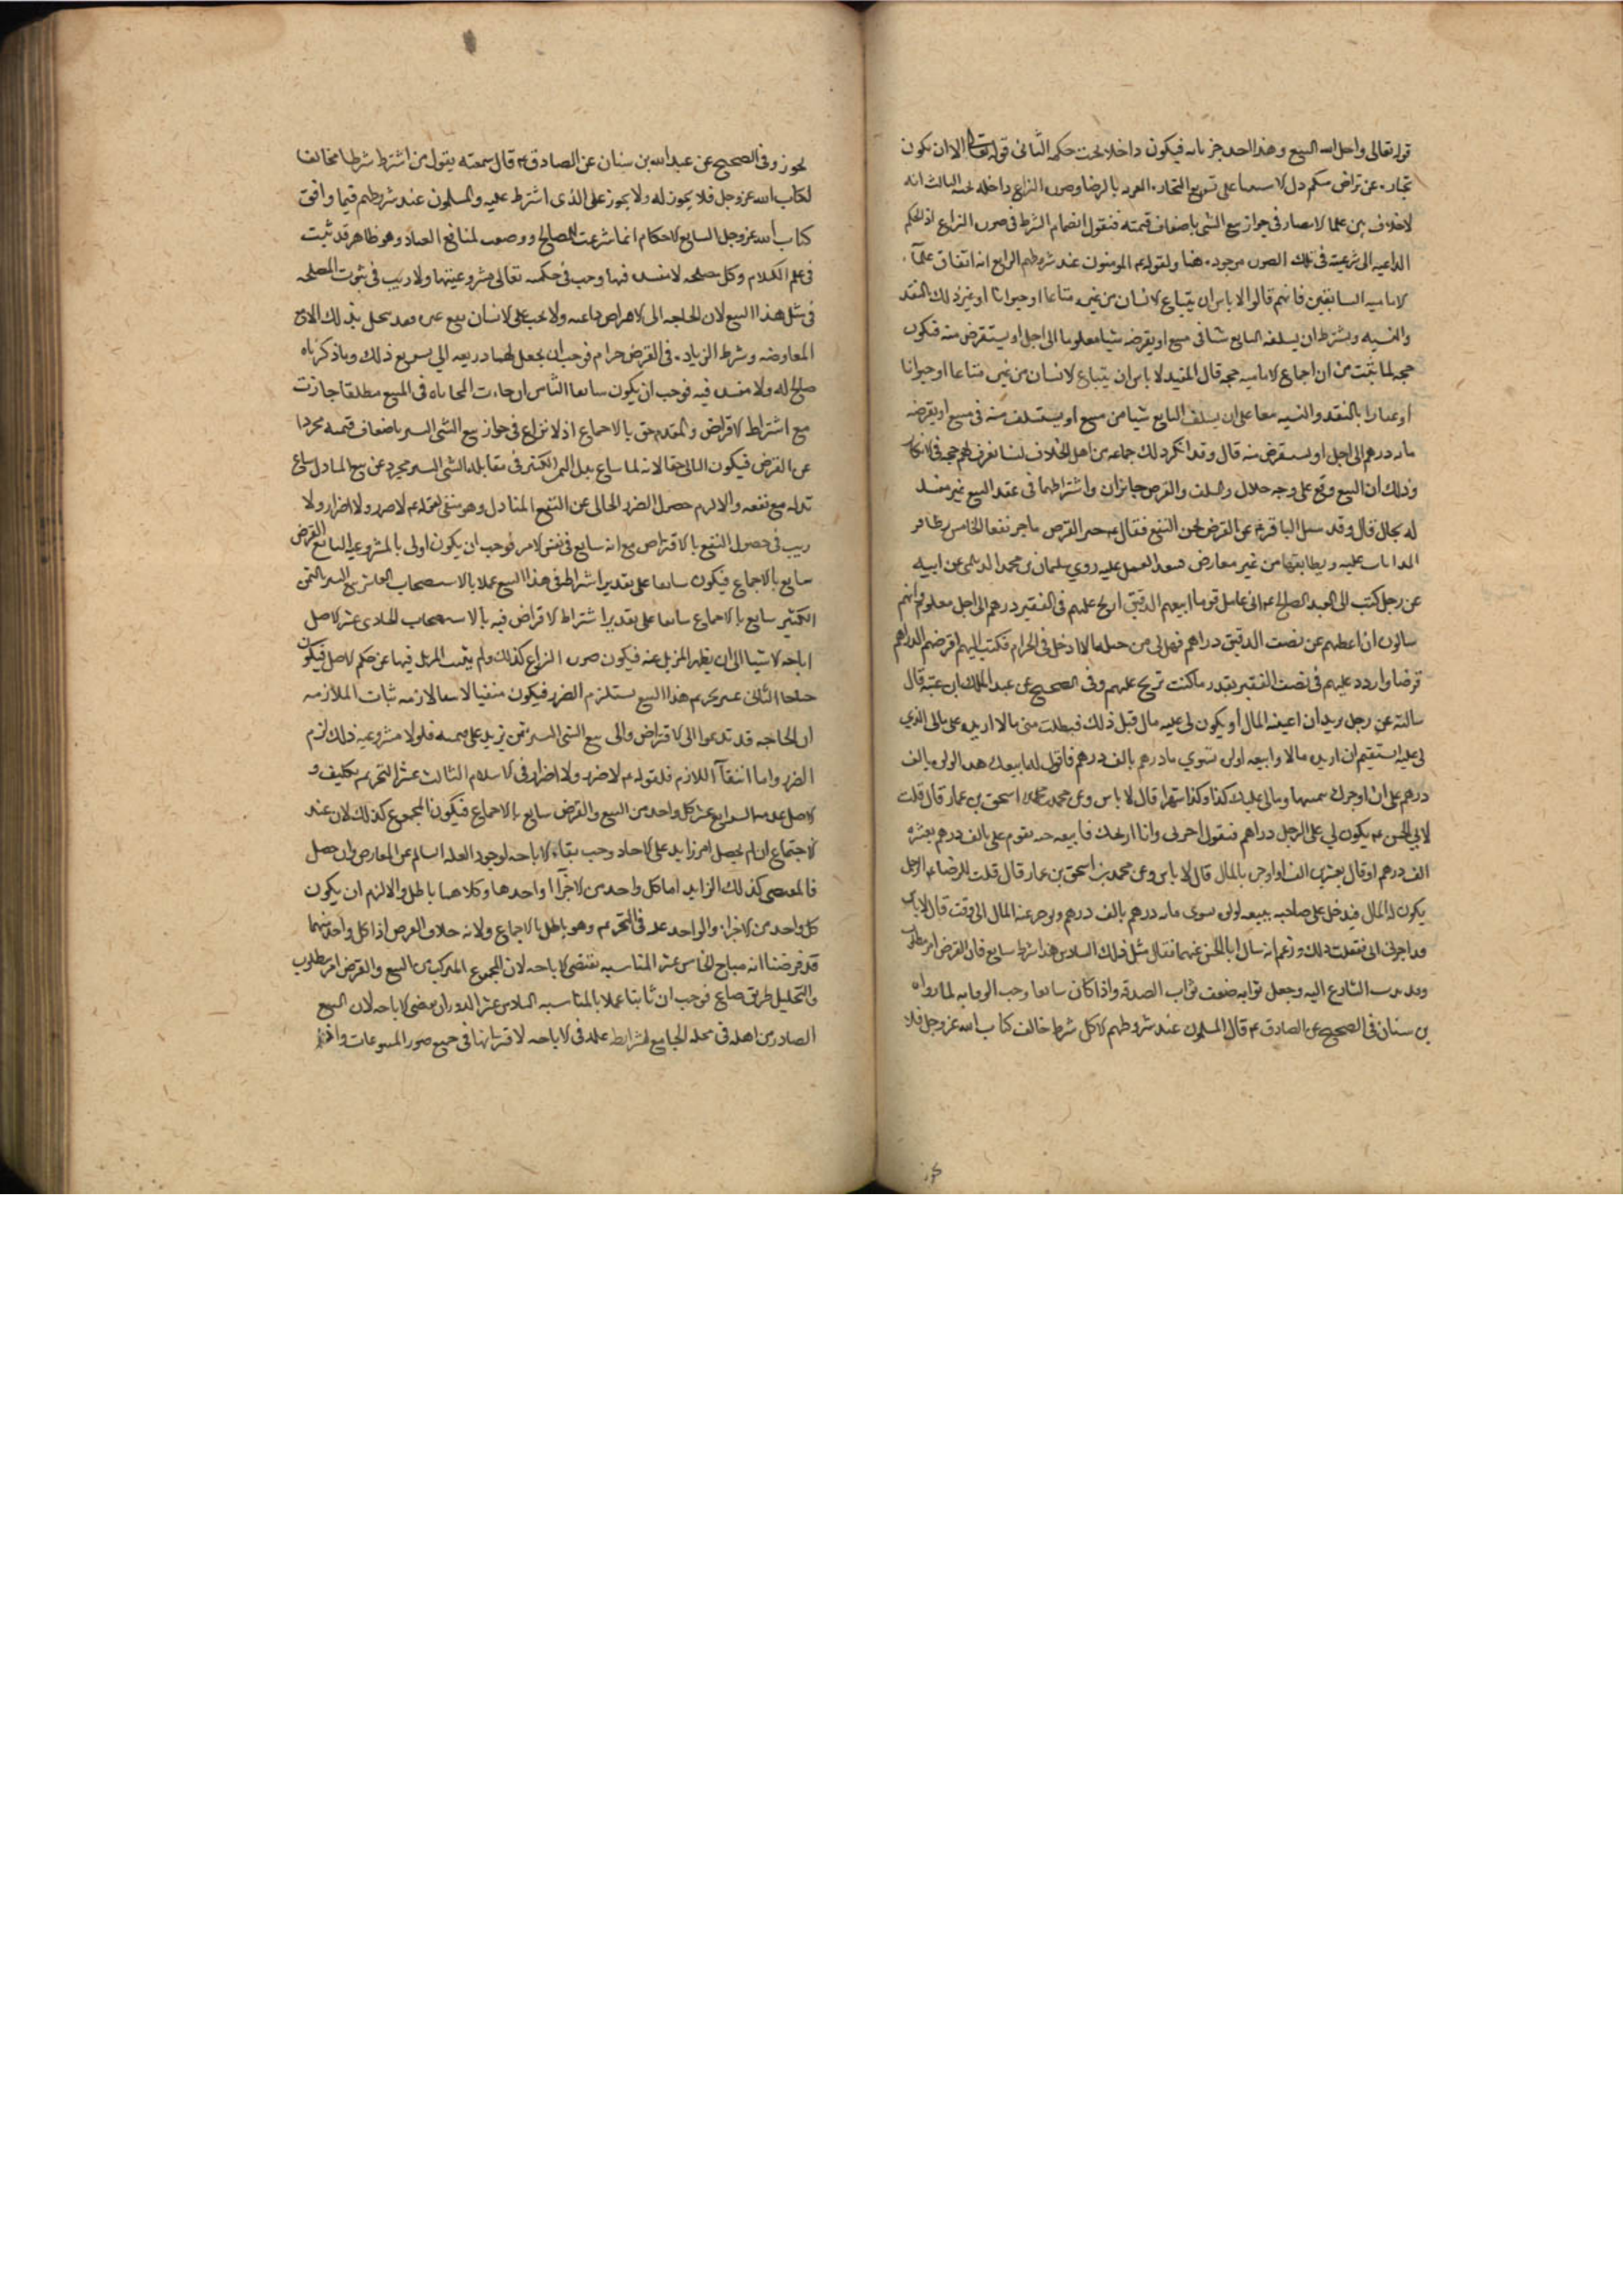 قوله تعالى واحل الله البيع وهذا احد جزئياته فيكون داخلا تحت حكمه الثانى قوله تعالى الا ان يكون
تجارة عن تراض منكم دل الاستثنا على تسويغ التجارة المقرونة بالرضا وصورة النزاع داخلة تحته الثالث انه
لا خلاف بين علما الامصار فى جواز بيع الشى باضعاف قيمته فنقول انضمام الشرط فى صورة النزاع اذ الحكم
الداعية الى شرعيته فى تلك الصورة موجودة هنا ولقوله ع المومنون عند شروطهم الرابع انه اتفاق علمآ
الامامية السابقين فانهم قالوا لا باس ان يبتاع الانسان من غيره متاعا او حيوانا او غير ذلك بالنقد
والنسية ويشترط ان يسلفه البايع شيا فى مبيع او يقرضه شيا معلوما الى اجل او يستقرض منه فيكون
حجة لما ثبت من ان اجماع الامامية حجة قال المفيد لا باس ان يبتاع الانسان من غيره متاعا او حيوانا
او عقارا بالنقد والنسية معا على ان يسلف البايع شيا من مبيع او يستسلف منه فى مبيع او يقرضه
مايه درهم الى اجل او يستقرض منه قال وقد انكر ذلك جماعة من اهل الخلاف لسنا نعرف لهم حجة فى الانكار
وذلك ان البيع وقع على وجه حلال والسلف والقرض جايزان واشتراطهما فى عقد البيع غير مفسد
له بحال قال وقد سئل الباقر ع عن القرض يجر النفع فقال ع خير القرض ما جر نفعا الخامس تظافر
الروايات عليه وتطابقها من غير معارض فيتعين العمل عليه روى سليمان بن محمد الديلمى عن ابيه
عن رجل كتب الى العبد الصالح ع انى عامل قوما ابيعهم الدقيق اربح عليهم فى القفيز درهم الى اجل معلوم وانهم
سالون ان اعطيهم عن نصف الدقيق دراهم فهل لى من حيلة الا ادخل فى الحرام فكتب اليهم اقرضهم الدراهم
قرضا وازدد عليهم فى نصف القفيز بقدر ما كنت تربح عليهم وفى الصحيح عن عبد الملك بن عتبه قال
سالته عن رجل يريد ان اعينه المال او يكون لى عليه مال قبل ذلك فيطلب منى مالا ازيده على مالى الذى
لى عليه ايستقيم ان ازيده مالا وابيعه لولوة تسوى ماية درهم بالف درهم فاقول له ابيعك هذه اللولوة بالف
درهم على ان اوخرك بثمنها ومالى عليك كذا وكذا شهرا قال لا باس وعن محمد بن اسحق بن عمار قال قلت
لابى الحسن ع يكون لى على الرجل دراهم فيقول اخرنى وانا اربحك فابيعه جبة تقوم على بالف درهم بعشرة
الف درهم او قال بعشرين الفا واوخره بالمال قال لا باس وعن محمد بن اسحق بن عمار قال قلت للرضا ع الرجل
يكون له المال فيدخل على صاحبه يبيعه لولوة تسوى مايه درهم بالف درهم ويوخر عنه المال الى وقت قال لا باس
قد امرنى ابى ففعلت ذلك وزعم انه سال ابا الحسن عنها فقال مثل ذلك السادس هذا شرط سايغ فان القرض امر مطلوب
وقد ندب الشارع اليه وجعل ثوابه ضعف ثواب الصدقة واذا كان سايغا وجب الوفا به لما رواه
بن سنان فى الصحيح عن الصادق ع قال المسلمون عند شروطهم الا كل شرط خالف كتاب الله عز وجل فلا
يجوز
يجوز وفى الصحيح عن عبد الله بن سنان عن الصادق ع قال سمعته يقول من اشترط شرطا مخالفا
لكتاب الله عز وجل فلا يجوز له ولا يجوز على الذى اشترط عليه والمسلمون عند شروطهم فيما وافق
كتاب الله عز وجل السابع الاحكام انما شرعت للمصالح ووضعت لمنافع العباد وهو ظاهر قد ثبت
فى علم الكلام وكل مصلحة لا مفسدة فيها وجب فى حكمته تعالى مشروعيتها ولا ريب فى ثبوت المصلحة
فى مثل هذا البيع لان الحاجة الى الاقراض داعية ولا يجب على الانسان نفع غيره وقد يبخل ببذل ذلك الا مع
المعاوضة وشرط الزيادة فى القرض حرام فوجب ان يجعل لهما ذريعة الى تسويغ ذلك وما ذكرناه
صالح له ولا مفسدة فيه فوجب ان يكون سايغا الثامن ان جازت المحاباة فى المبيع مطلقا جازت
مع اشتراط الاقراض والمقدم حق بالاجماع اذ لا نزاع فى جواز بيع الشى اليسير باضعاف قيمته مجردا
عن القرض فيكون التالى حقا لانه لما ساغ بذل الثمن الكثير فى مقابلة الشى اليسير مجرد عن نفع المبادل ساغ
بذله مع نفعه والا لزم حصول الضرر الخالى عن النفع المبادل وهو منفى لقوله ع لا ضرر ولا اضرار ولا
ريب فى حصول النفع بالاقتراض مع انه سايغ فى نفس الامر فوجب ان يكون اولى بالمشروعية التاسع القرض
سايغ بالاجماع فيكون سايغا على تقدير اشتراطه فى هذا البيع عملا بالاستصحاب العاشر بيع اليسير بالثمن
الكثير سايغ بالاجماع سايغا على تقدير اشتراط الاقراض فيه بالاستصحاب الحادى عشر الاصل
اباحة الاشيا الى ان يظهر المزيل عنه فيكون صورة النزاع كذلك ولم يثبت المزيل فيها عن حكم الاصل فيكون
مباحا الثانى عشر تحريم هذا البيع يستلزم الضرر فيكون منفيا لانتفا لازمه ثبات الملازمة
ان الحاجة قد تدعوا الى الاقتراض والى بيع الشى اليسير بثمن يزيد على قيمته فلولا مشروعية ذلك لزم
الضرر واما انتفآ اللازم فلقوله ع لا ضرر ولا اضرار فى الاسلام الثالث عشر التحريم تكليف و
الاصل عدمه الرابع عشر كل واحد من البيع والقرض سايغ بالاجماع فيكون المجموع كذلك لان عند
الاجتماع ان لم يحصل امر زايد على الاحاد وجب بقاء الاباحة لوجود العلة السالم عن المعارض وان حصل
فالمقتضى كذلك الزايد اما كل واحد من الاجزآ او احدها وكلاهما باطل والا لزم ان يكون
كل واحد من الاجزاء والواحد علة فى التحريم وهو باطل بالاجماع ولانه خلاف الفرض اذا كل واحد منهما
قد فرضنا انه مباح الخامس عشر المناسبة تقتضى الاباحة لان المجموع المركب من البيع والقرض امر مطلوب
والتحليل طريق صالح فوجب ان ثابتا عملا بالمناسبة السادس عشر الدوران يقتضى الاباحة لان البيع
الصادر من اهله فى محله الجامع لشرايط علة فى الاباحة لاقترانها فى جميع صور المبيوعات